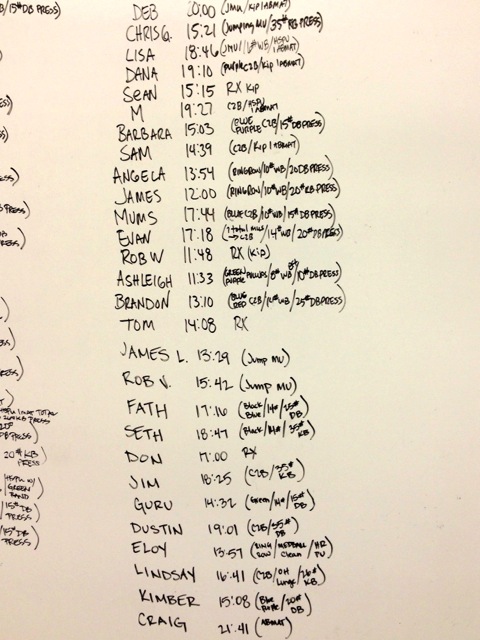 DEB (JMU/KIP/ABMAT)
CHRIS G. 15:21 (Jumping MU/35# KB PRESS)
LISA 18:46
DANA 19:10 (Purple C2B/Kip/ABMAT)
SEAN 15:15 RX Kip
M 19:27 C2B/HSPU 1 ABMAT
BARBARA 15:03 (BLUE PURPLE C2B/15# DB PRESS)
SAM 14:39 (C2B/Kip 1 ABMAT)
ANGELA 13:54 (RINGROW/10# WB/20DB PRESS)
JAMES 12:00 (RINGROW/10# WB/20# KB PRESS)
MUMS 17:44 (BLUE C2B/10# WB/15# DB PRESS)
EVAN 17:18 (→ C2B/14# WB/20# DB PRESS)
ROB W 11:48 RX (Kip)
ASHLEIGH 11:33 (GREEN PURPLE PULLUPS/8# WB/10# DB PRESS)
BRANDON 13:10 (BLUE RED C2B/14# WB/25# DB PRESS)
TOM 14:08 RX
JAMES L. 13:29 (Jump MU)
ROB V. 15:42 (Jump MU)
FATH 17:16 (Black/Blue/14#/25# DB)
SETH 18:47 (Black/14#/35# KB)
DON 17:00 RX
JIM 18:25 (C2B/35# KB)
GURU 14:32 (Green/14#/15# DB)
DUSTIN 19:01 (C2B/35# DB)
ELOY 13:57 (RING ROW/MEDBALL Clean/HR PU)
LINDSAY 16:41 (C2B/OH Lunge/26# KB)
KIMBER 15:08 (Blue Purple/20# DB)
CRAIG 21:41 (ABMAT)